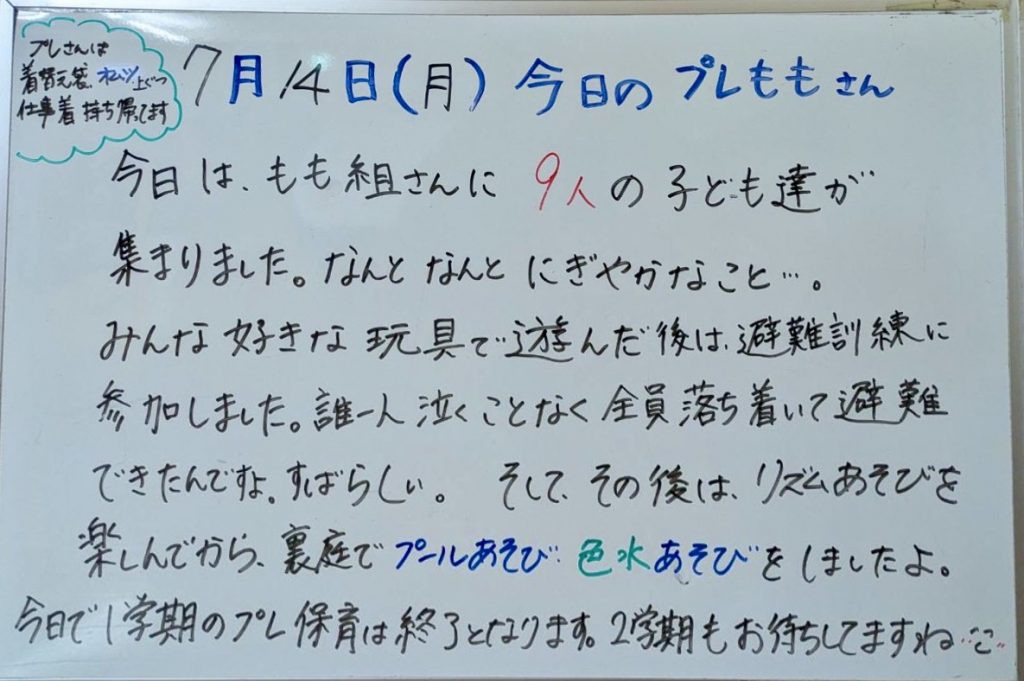 プレさんは
着替え袋、オムツ、上ぐつ
仕事着 持ち帰ってます
7月14日(月) 今日の プレももさん
今日は、もも組さんに 9人の 子ども達が
集まりました。なんと なんと にぎやかなこと…。
みんな 好きな 玩具で 遊んだ 後は、避難訓練に
参加しました。誰一人 泣くことなく 全員 落ち着いて 避難
できたんですよ。すばらしい。 そして、その後は、リズムあそびを
楽しんでから、裏庭で プールあそび 色水あそびを しましたよ。
今日で 1学期の プレ 保育は 終了となります。2学期も お待ちしてますね